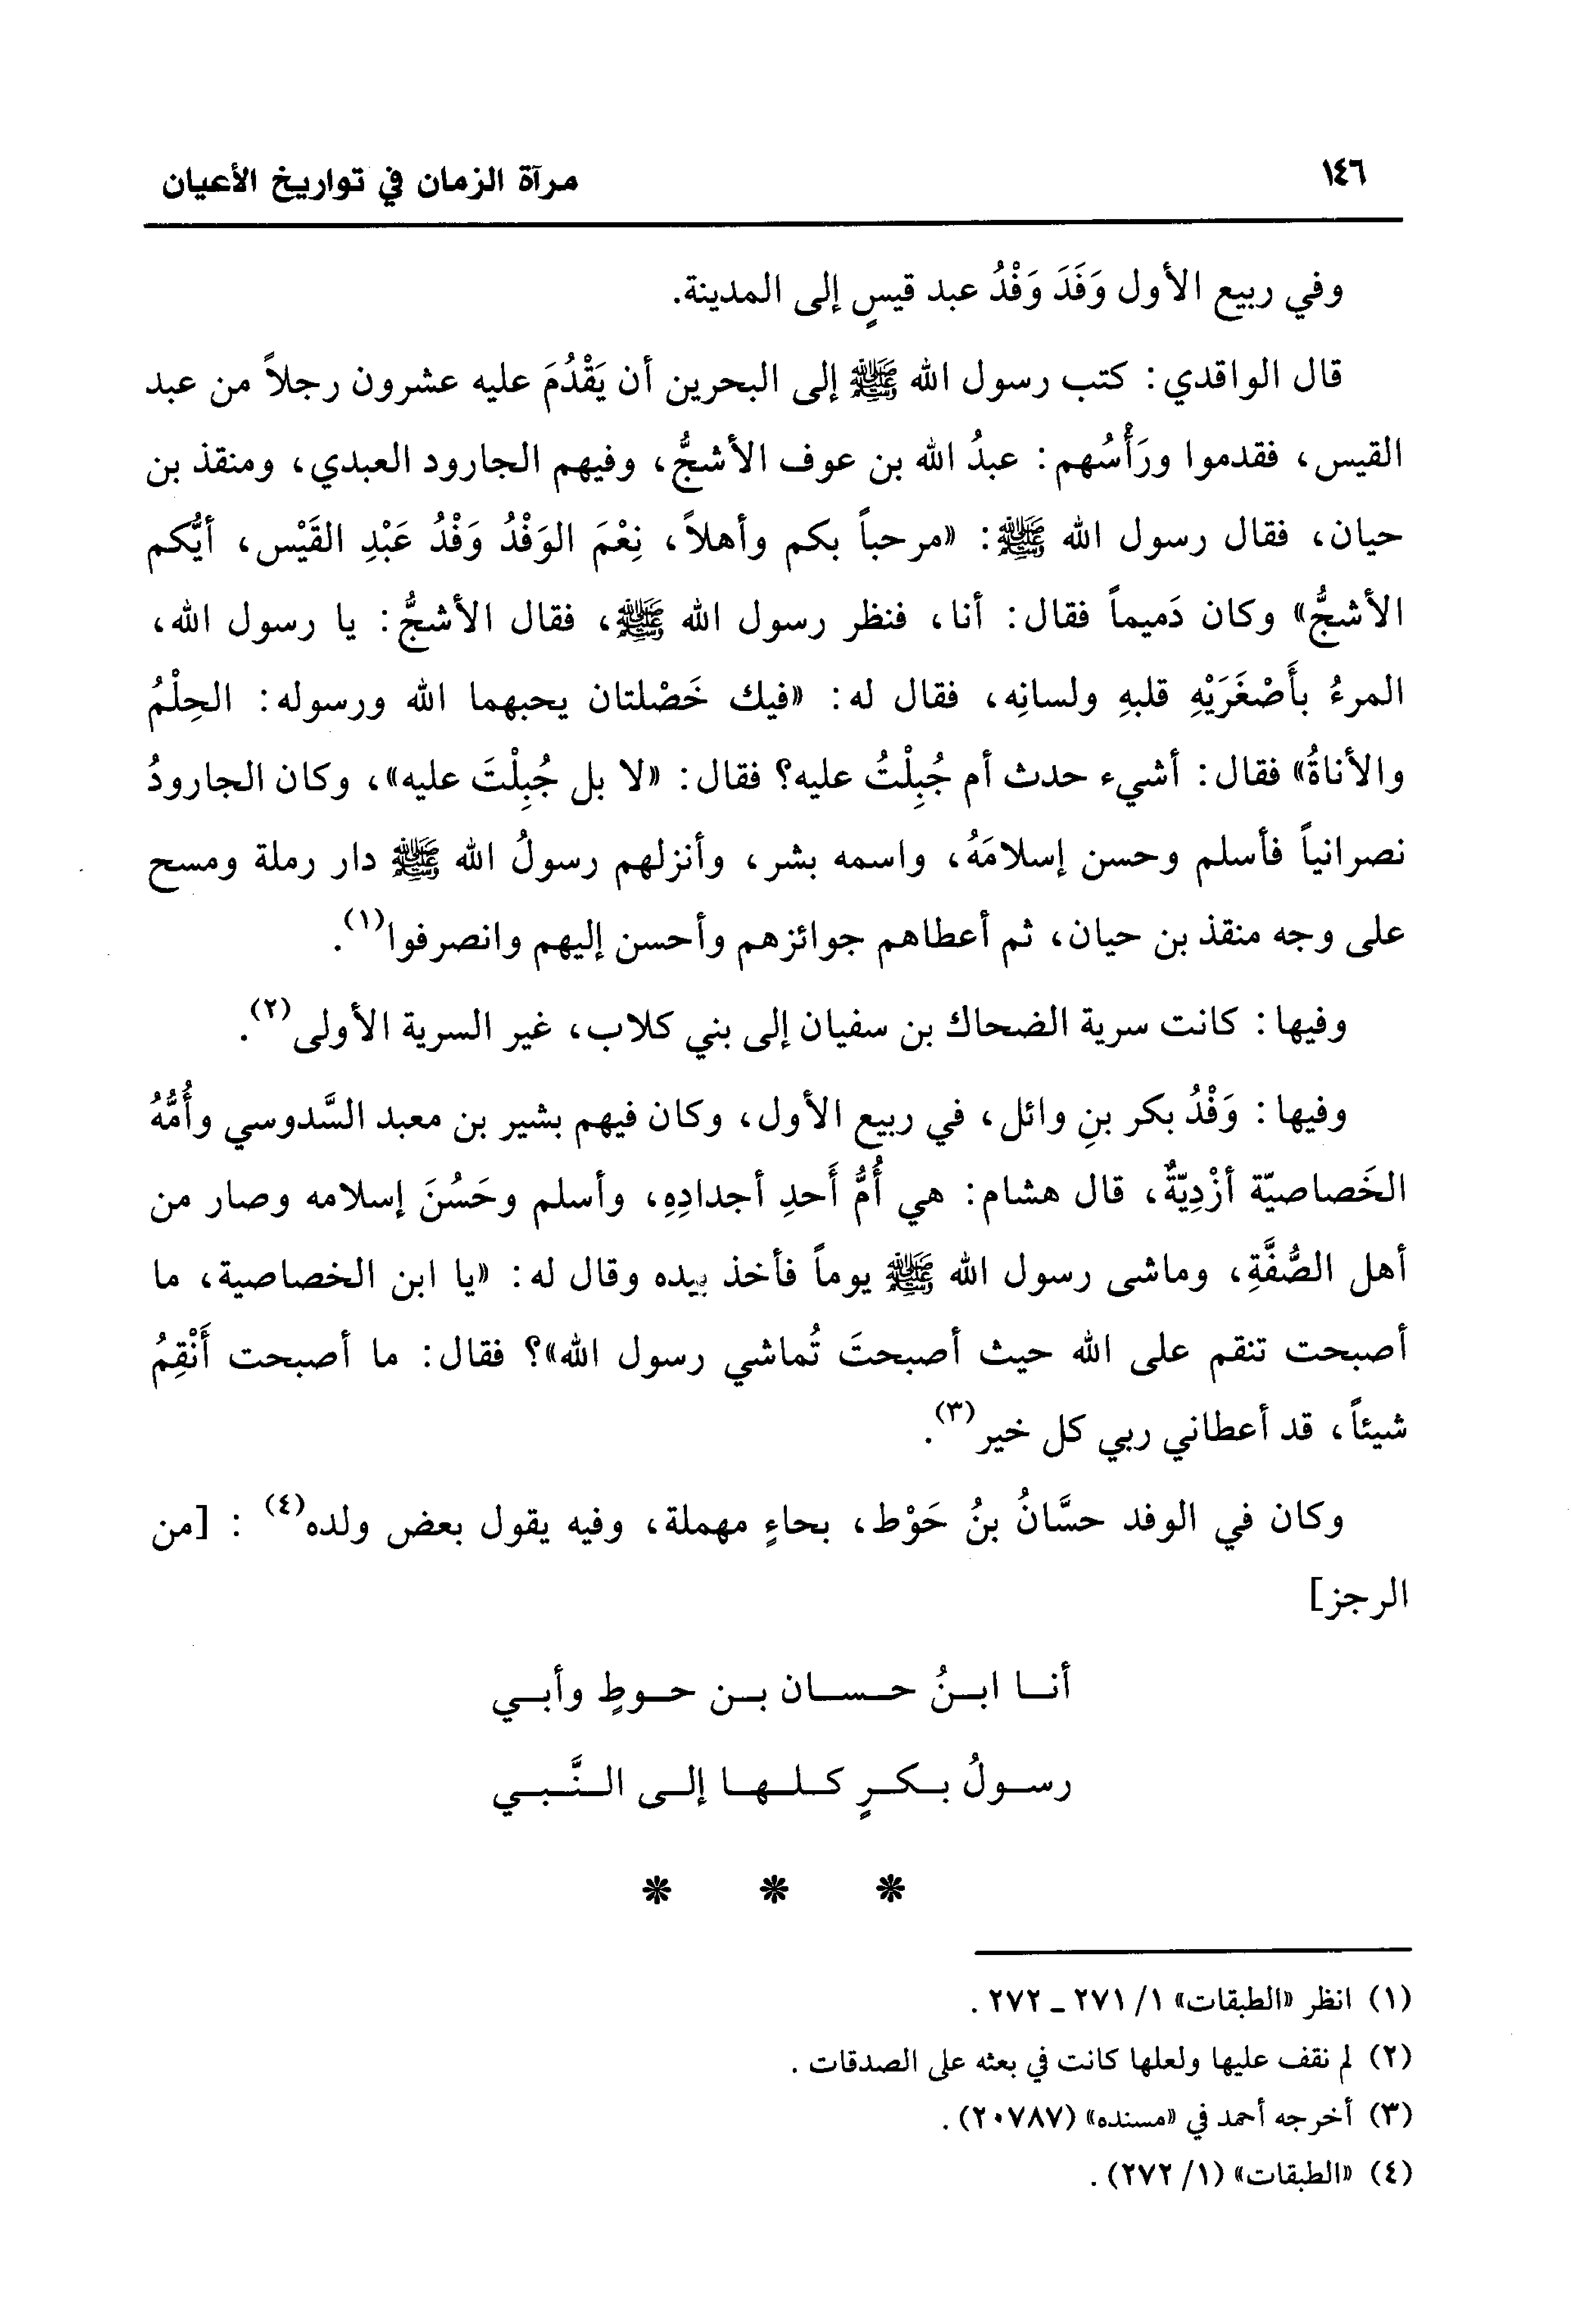 ١٤٦ مرآة الزمان في تواريخ الأعيان
وفي ربيع الأول وَفَدَ وَفْدُ عبد قيسٍ إلى المدينة.
قال الواقدي: كتب رسول الله ﷺ إلى البحرين أن يَقْدُمَ عليه عشرون رجلاً من عبد
القيس، فقدموا ورَأْسُهم: عبدُ الله بن عوف الأشجُّ، وفيهم الجارود العبدي، ومنقذ بن
حيان، فقال رسول الله ﷺ: «مرحباً بكم وأهلاً، نِعْمَ الوَفْدُ وَفْدُ عَبْدِ القَيْس، أيُّكم
الأشجُّ» وكان دَميماً فقال: أنا، فنظر رسول الله ﷺ، فقال الأشجُّ: يا رسول الله،
المرءُ بأَصْغَرَيْهِ قلبهِ ولسانِه، فقال له: «فيك خَصْلتان يحبهما الله ورسوله: الحِلْمُ
والأناةُ» فقال: أشيء حدث أم جُبِلْتُ عليه؟ فقال: «لا بل جُبِلْتَ عليه»، وكان الجارودُ
نصرانياً فأسلم وحسن إسلامَهُ، واسمه بشر، وأنزلهم رسولُ الله ﷺ دار رملة ومسح
على وجه منقذ بن حيان، ثم أعطاهم جوائزهم وأحسن إليهم وانصرفوا(١).
وفيها: كانت سرية الضحاك بن سفيان إلى بني كلاب، غير السرية الأولى(٢).
وفيها: وَفْدُ بكر بنِ وائل، في ربيع الأول، وكان فيهم بشير بن معبد السَّدوسي وأُمُّهُ
الخَصاصيّة أزْدِيّةٌ، قال هشام: هي أُمُّ أَحدِ أجدادِهِ، وأسلم وحَسُنَ إسلامه وصار من
أهل الصُّفَّةِ، وماشى رسول الله ﷺ يوماً فأخذ بيده وقال له: «يا ابن الخصاصية، ما
أصبحت تنقم على الله حيث أصبحتَ تُماشي رسول الله»؟ فقال: ما أصبحت أَنْقِمُ
شيئاً، قد أعطاني ربي كل خير(٣).
وكان في الوفد حسَّانُ بنُ حَوْط، بحاءٍ مهملة، وفيه يقول بعض ولده(٤): [من
الرجز]
أنا ابنُ حسان بن حوطٍ وأبي
رسولُ بكرٍ كلها إلى النَّبي
* * *
(١) انظر «الطبقات» ١/ ٢٧١ ـ ٢٧٢.
(٢) لم نقف عليها ولعلها كانت في بعثه على الصدقات.
(٣) أخرجه أحمد في «مسنده» (٢٠٧٨٧).
(٤) «الطبقات» (١/ ٢٧٢).